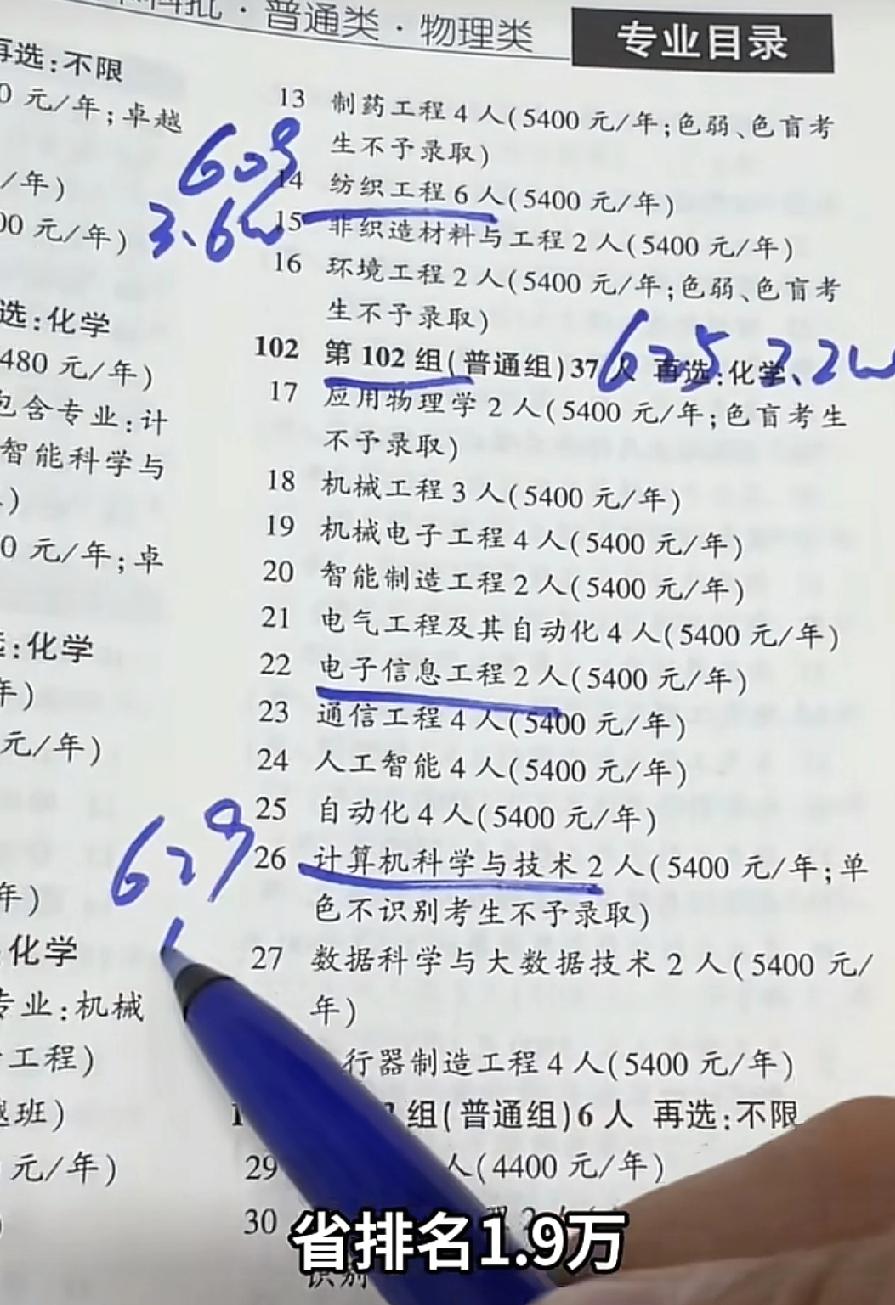 科批·普通类·物理类
专业目录
再选:不限
0元/年;卓越
/年)
00元/年)
选:化学
480元/年)
包含专业:计
智能科学与
)
0元/年;卓
:化学
年)
元/年)
年)
化学
专业:机械
工程)
越班)
元/年)
)
609
3.6w
13 制药工程4人(5400元/年;色弱、色盲考
生不予录取)
14 纺织工程6人(5400元/年)
15 非织造材料与工程2人(5400元/年)
16 环境工程2人(5400元/年;色弱、色盲考
生不予录取)
102 第102组(普通组)37人 再选:化学
625 2.2w
17 应用物理学2人(5400元/年;色盲考生
不予录取)
18 机械工程3人(5400元/年)
19 机械电子工程4人(5400元/年)
20 智能制造工程2人(5400元/年)
21 电气工程及其自动化4人(5400元/年)
22 电子信息工程2人(5400元/年)
23 通信工程4人(5400元/年)
24 人工智能4人(5400元/年)
25 自动化4人(5400元/年)
629
26 计算机科学与技术2人(5400元/年;单
色不识别考生不予录取)
27 数据科学与大数据技术2人(5400元/
年)
行器制造工程4人(5400元/年)
1 组(普通组)6人 再选:不限
29 人(4400元/年)
30
识别
省排名1.9万